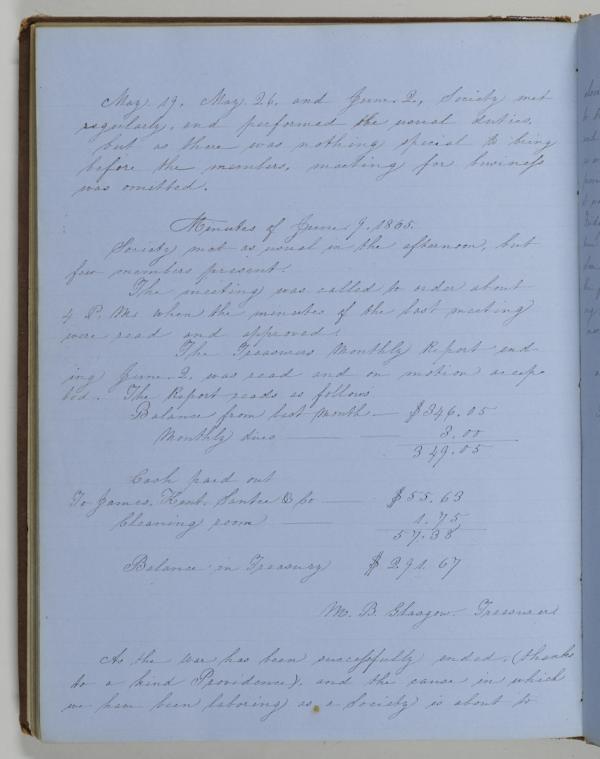 May. 19. May. 26. and June. 2, Society met
regularly, and performed the usual duties,
but as there was nothing special to bring
before the members, meeting for business
was omitted.
Minutes of June. 9. 1865.
Society met as usual in the afternoon, but
few members present.
The meeting was called to order about
4 P. M. when the minutes of the last meeting
were read and approved.
The Treasurers Monthly Report end-
ing June. 2. was read and on motion accep-
ted. The Report reads as follows
Balance from last month — $346.05
Monthly dues — — 3.00
349.05
Cash paid out
To James, Kent, Santee & Co — $55.63
Cleaning room — 1.75
57.38
Balance in Treasury $291.67
M. B. Glasgow. Treasurer
As the war has been successfully ended, (thanks
to a kind Providence), and the cause in which
we have been laboring as a Society is about to